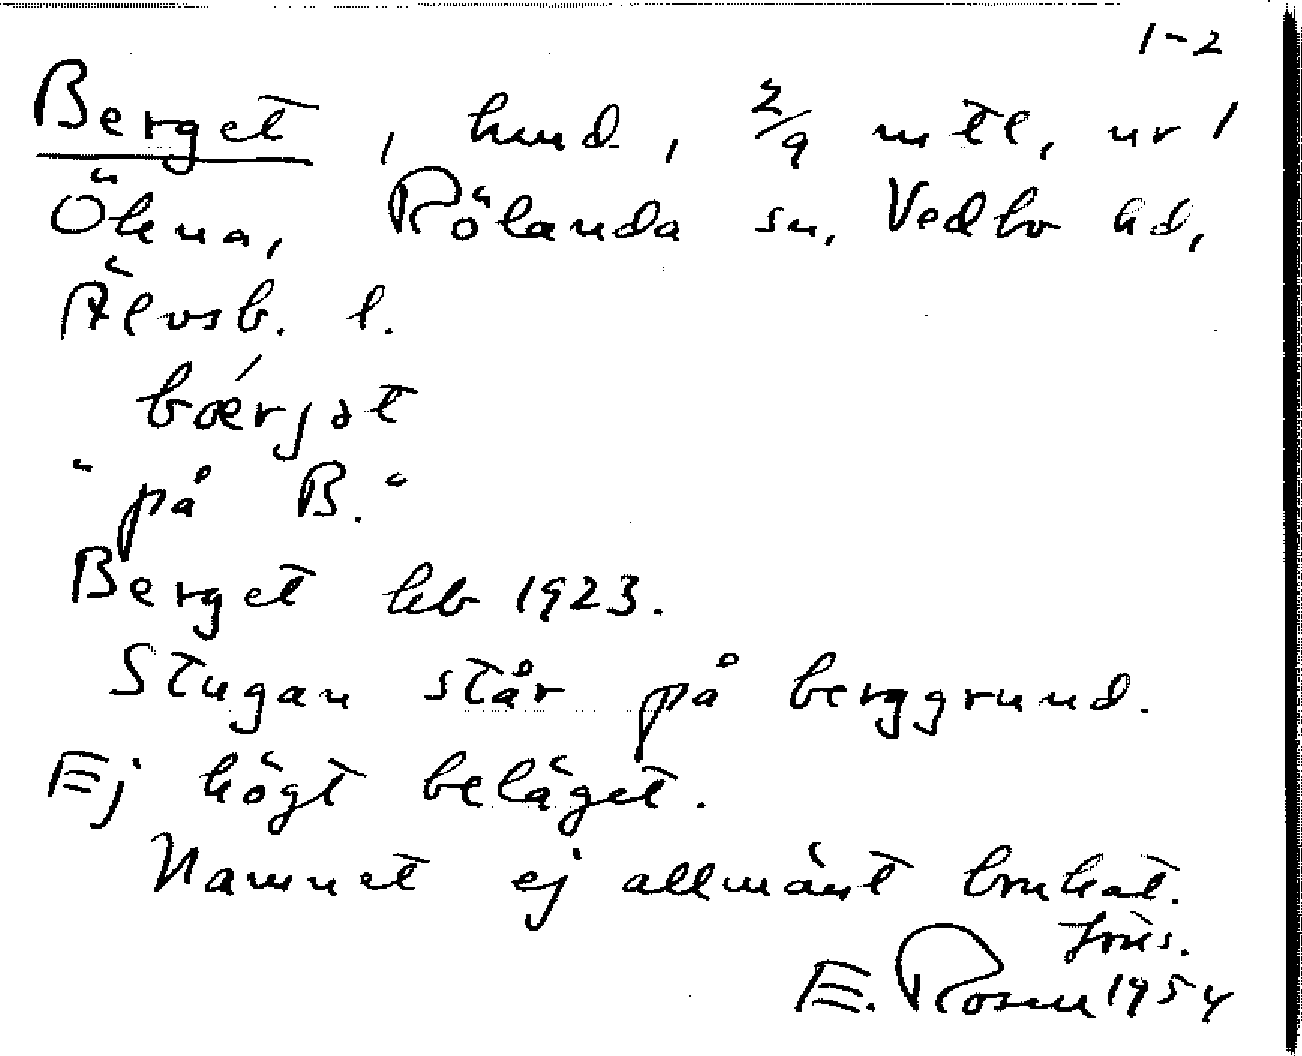 1-2
Berget, hmd, 2/9 mtl, nr 1
Ökna, Rölanda sn, Vedbo hd,
Älvsb. l.
bǽrjət
"på B."
Berget lkb 1923.
Stugan står på berggrund.
Ej högt beläget.
Namnet ej allmänt brukat.
E. Rosen 1954